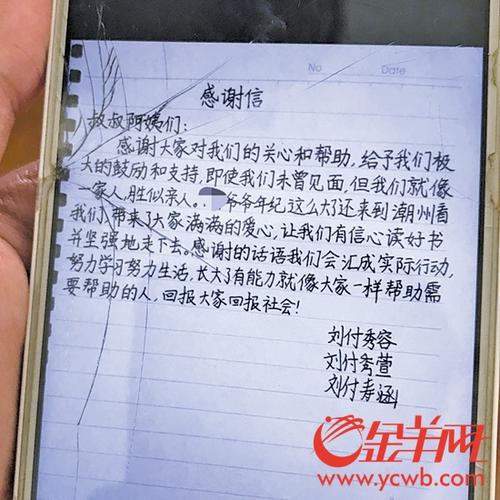 No
Date
感谢信
叔叔阿姨们:
感谢大家对我们的关心和帮助,给予我们极
大的鼓励和支持,即使我们未曾见面,但我们就像
一家人,胜似亲人。爷爷年纪这么大了还来到潮州看
我们,带来了大家满满的爱心,让我们有信心读好书
并坚强地走下去。感谢的话语我们会汇成实际行动,
努力学习努力生活,长大了有能力就像大家一样帮助需
要帮助的人,回报大家回报社会!
刘付秀容
刘付秀萱
刘付寿涵
金羊网
www.ycwb.com